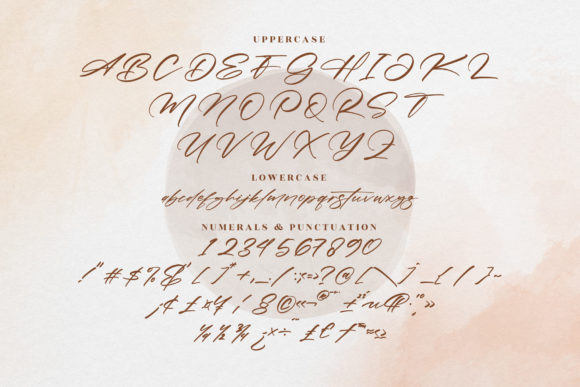 UPPERCASE
A B C D E F G H I J K L
M N O P Q R S T
U V W X Y Z
LOWERCASE
abcdefghijklmnopqrstuvwxyz
NUMERALS & PUNCTUATION
1 2 3 4 5 6 7 8 9 0
! " # $ % & ' ( ) * + , - . / : ; < = > ? @ [ \ ]
¡ ¢ £ ¤ ¥ ¦ § © « ¬ ® ¯ ± ² ³ µ ¶
¼ ½ ¾ ¿ × ÷